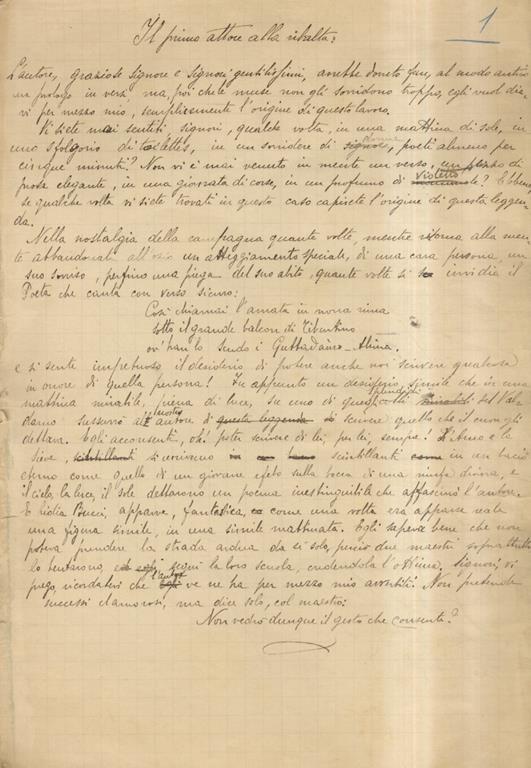 1
Il primo attore alla ribalta:
L'autore, graziose signore e signori gentilissimi, avrebbe dovuto fare, al modo antico
un prologo in versi, ma, poichè le muse non gli sorridono troppo, egli vuol dir
vi per mezzo mio, semplicemente l'origine di questo lavoro.
Vi siete mai sentiti, signori, qualche volta, in una mattina di sole, in
uno sfolgorio di toilettes, in un sorridere di signore, poeti almeno per
cinque minuti? Non vi è mai venuto in mente un verso, un pezzo di
prosa elegante, in una giornata di corse, in un profumo di violette? Ebbene
se qualche volta vi siete trovati in questo caso capirete l'origine di questa leggen-
da.
Nella nostalgia della campagna quante volte, mentre ritorna alla men-
te abbandonata all'ozio un atteggiamento speciale, di una cara persona, un
suo sorriso, perfino una piega del suo abito, quante volte si invidia il
Poeta che canta con verso sicuro:
Così chiamai l'amata in nona rima
sotto il grande balcon di Tiburtino
ov' han lo scudo i Guttadauro-Alima.
e si sente impetuoso il desiderio di potere anche noi scrivere qualcosa
in onore di quella persona! Fu appunto un desiderio simile che in una
mattina mirabile, piena di luce, su uno di quei colli del Val
darno sussurrò all' nostro autore di scrivere quello che il cuore gli
dettava. Egli acconsentì, oh! poter scrivere di lei, per lei, sempre! L'Arno e la
Sieve, si univano scintillanti in un bacio
eterno come quello di un giovane efebo sulla bocca di una ninfa divina, e
il cielo, la luce, il sole dettarono un poema inestinguibile che affascinò l'autore.
E Giglia Bucci, apparve, fantastica, come una volta era apparsa reale
una figura simile, in una simile mattinata. Egli sapeva bene che non
poteva prendere la strada ardua da sè solo, perciò due maestri soprattutto
lo tentarono, seguì la loro scuola, credendola l'ottima. Signori, vi
prego, ricordatevi che l'autore ve ne ha per mezzo mio avvertiti. Non pretende
successi clamorosi, ma dice solo, col maestro:
Non vedrò dunque il gesto che consente?